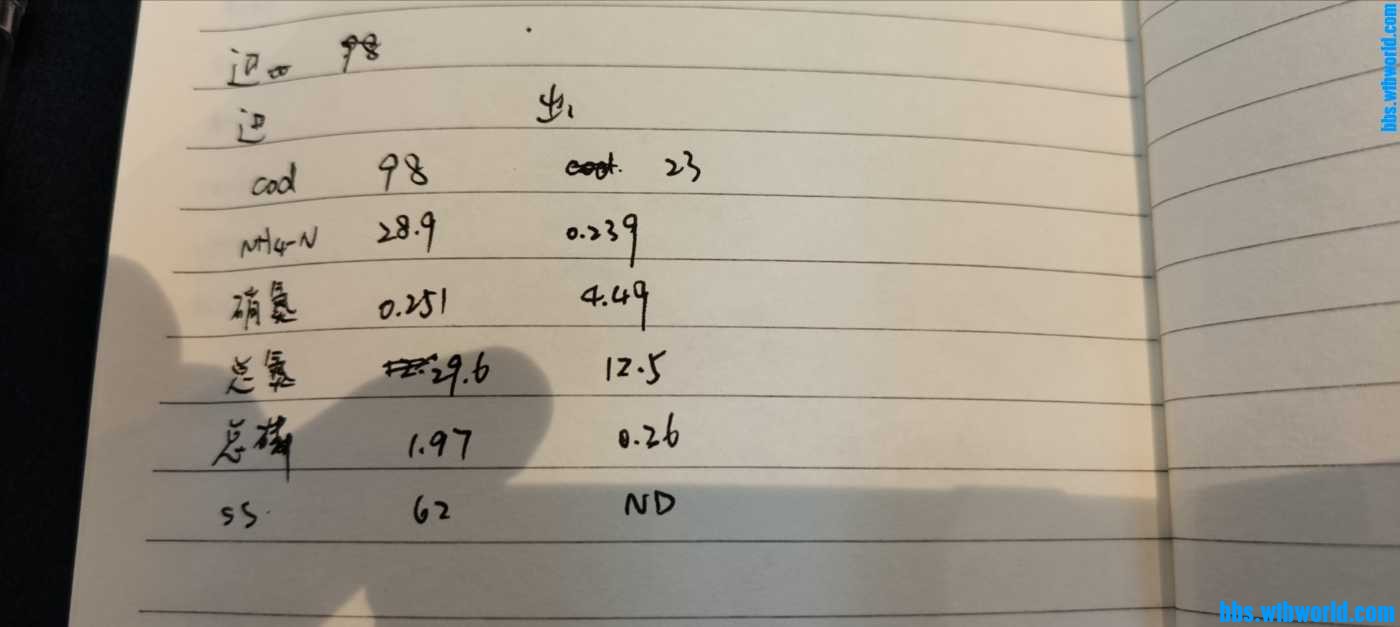 进 98
进 出
cod 98 23
NH4-N 28.9 0.239
硝氮 0.251 4.49
总氮 29.6 12.5
总磷 1.97 0.26
SS. 62 ND
bbs.wtbworld.com
bbs.wtbworld.com